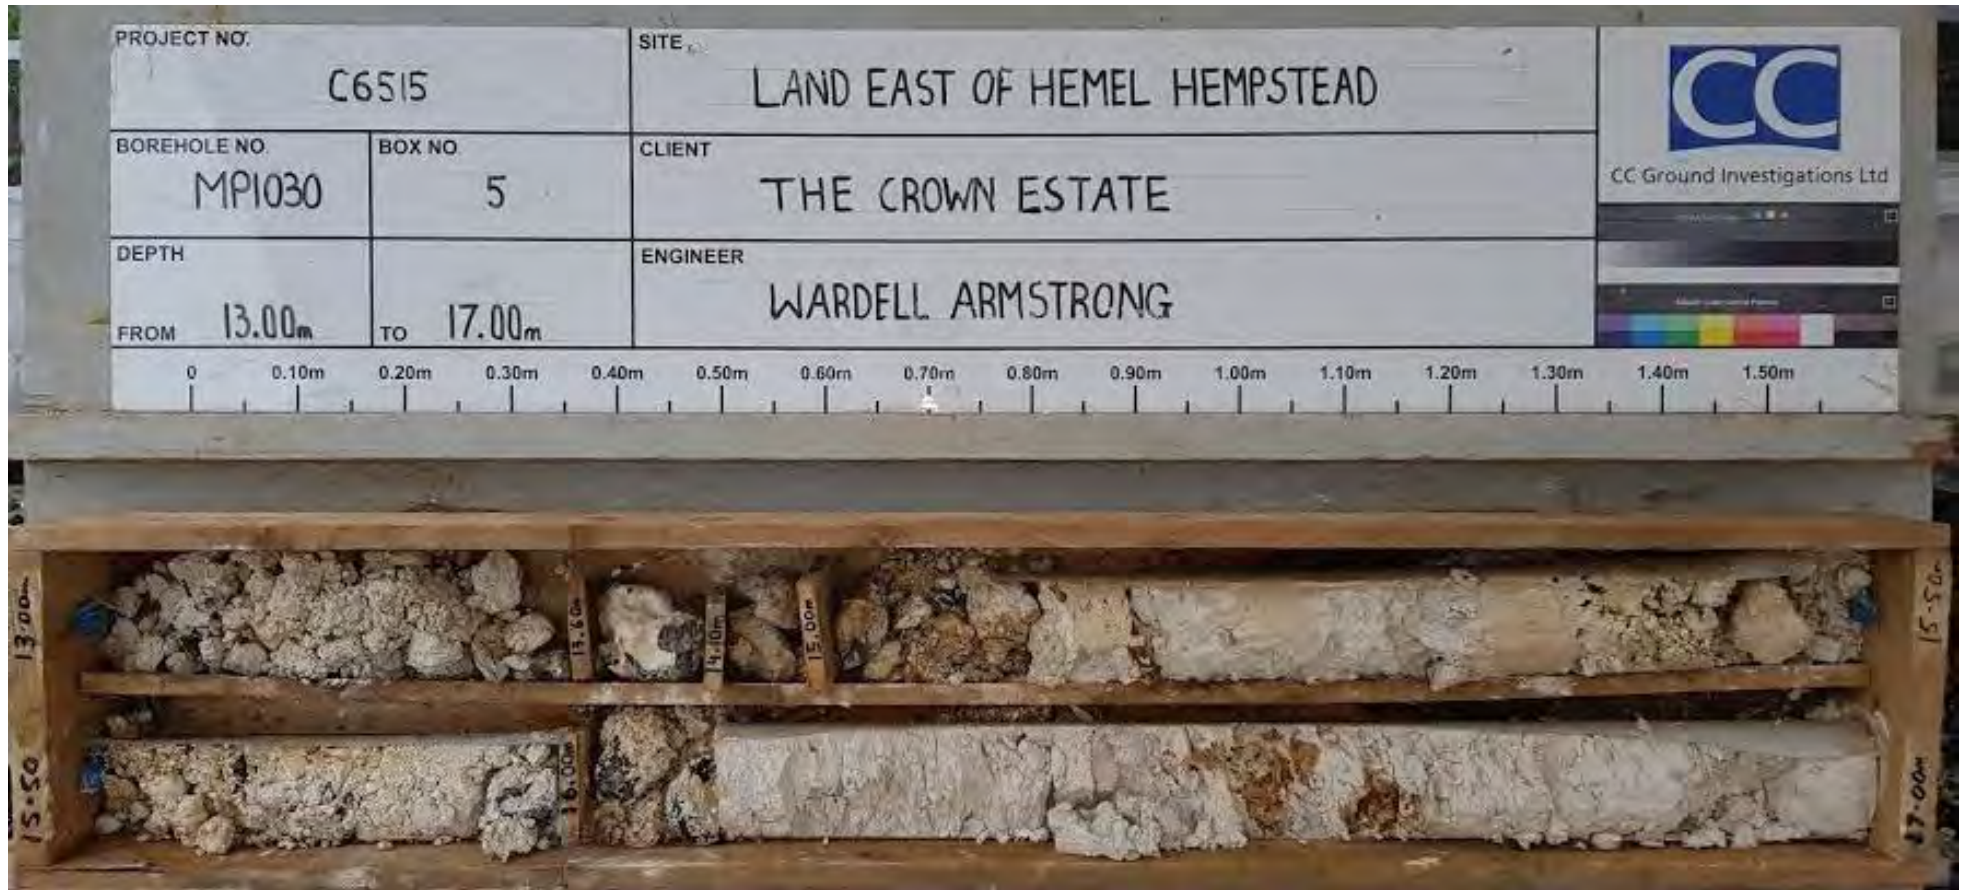 PROJECT NO.
C6515
SITE
LAND EAST OF HEMEL HEMPSTEAD
CC
CC Ground Investigations Ltd
BOREHOLE NO.
MP1030
BOX NO
5
CLIENT
THE CROWN ESTATE
DEPTH
FROM 13.00m TO 17.00m
ENGINEER
WARDELL ARMSTRONG
0 0.10m 0.20m 0.30m 0.40m 0.50m 0.60m 0.70m 0.80m 0.90m 1.00m 1.10m 1.20m 1.30m 1.40m 1.50m
13.00m
13.60m
15.00m
15.50m
15.50
16.00m
17.00m